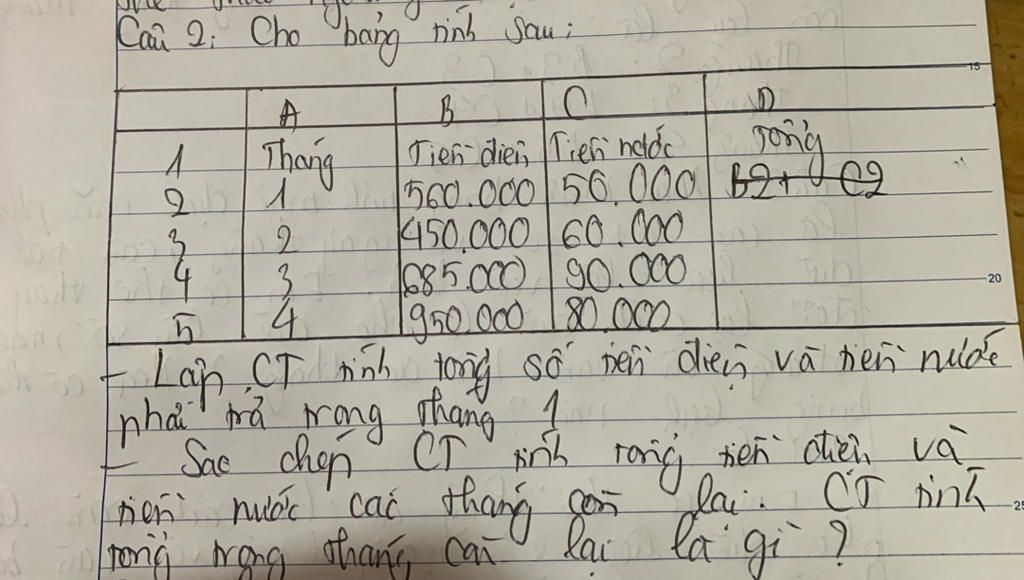 Câu 2: Cho bảng tính sau:
A B C D
1 Tháng Tiền điện Tiền nước Tổng
2 1 560.000 50.000 b2+ C2
3 2 450.000 60.000
4 3 685.000 90.000
5 4 950.000 80.000
- Lập CT tính tổng số tiền điện và tiền nước
phải trả trong tháng 1
- Sao chép CT tính tổng tiền điện và
tiền nước các tháng còn lại. CT tính
tổng trong tháng còn lại là gì?